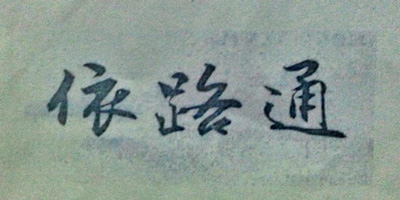 依路通